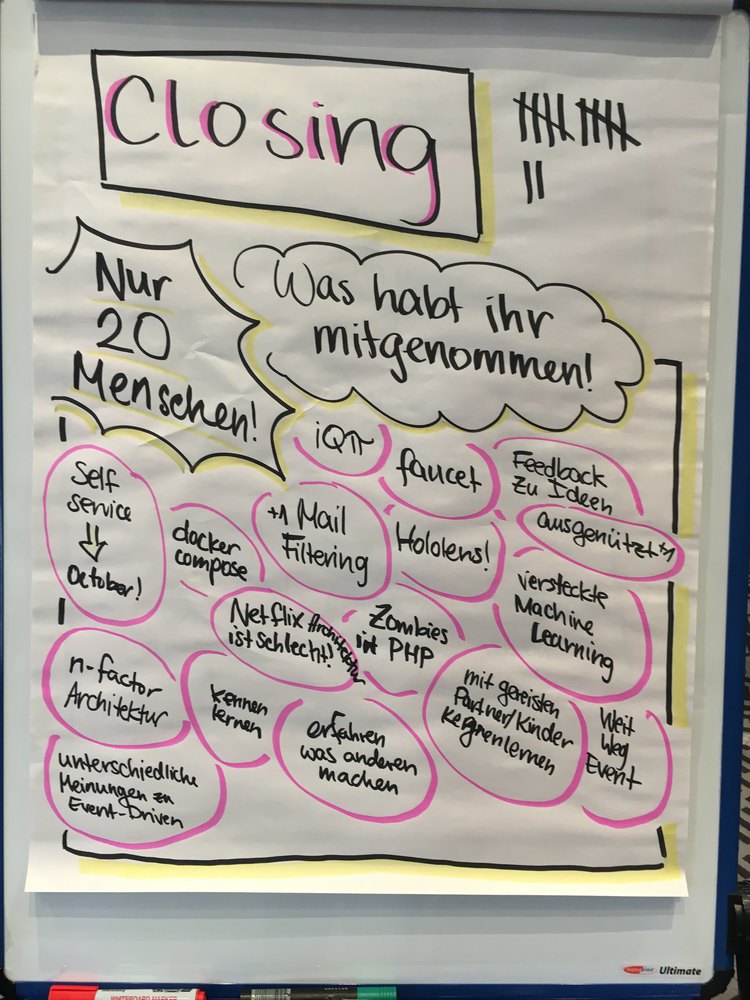 Closing
Nur
20
Menschen!
Was habt ihr
mitgenommen!
iQπ
faucet
Feedback
zu Ideen
ausgenützt +1
Self
service
October!
docker
compose
+1 Mail
Filtering
Hololens!
versteckte
Machine
Learning
Netflix Architektur
ist schlecht!
Zombies
in PHP
n-factor
Architektur
kennen
lernen
erfahren
was anderen
machen
mit gereisten
Partner/Kinder
kennenlernen
Weit
Weg
Event
unterschiedliche
Meinungen zu
Event-Driven
Ultimate
WHITEBOARD MARKER